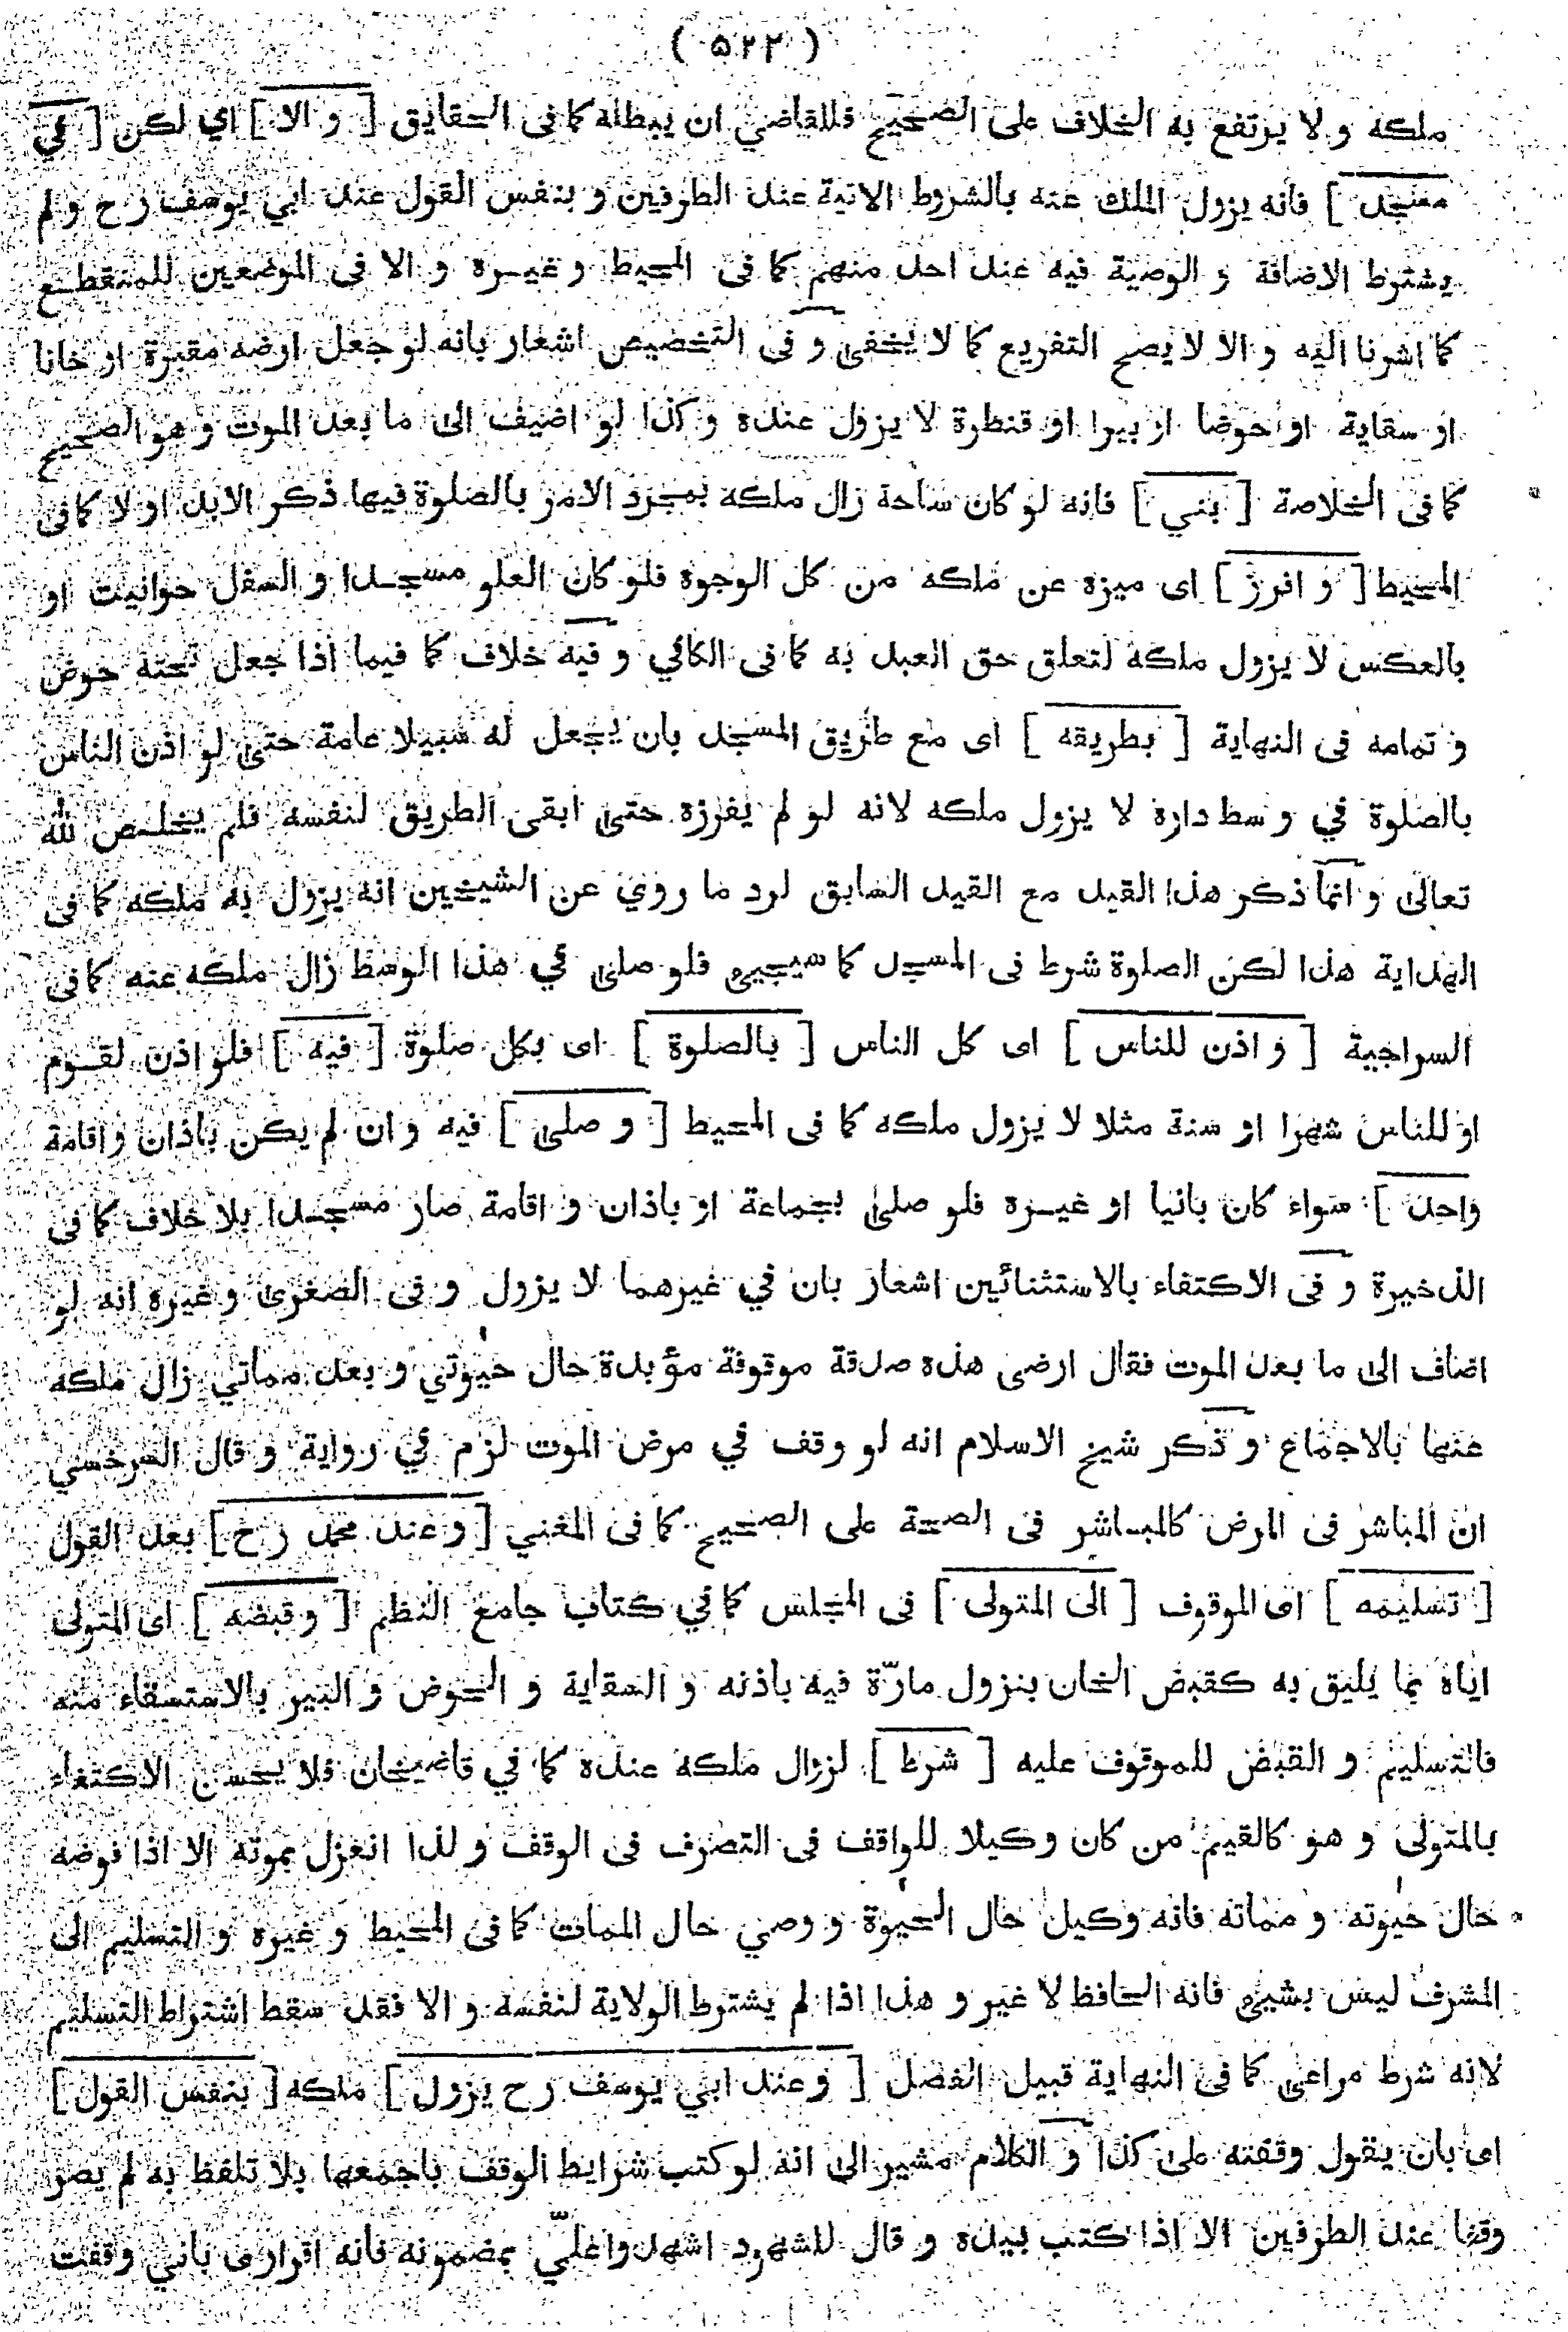 ( ٥٢٢ )
ملكه و لا يرتفع به الخلاف على الصحيح فللقاضي ان يبطله كما فى الحقايق [ و الا ] اي لكن [ في
مسجد ] فانه يزول الملك عنه بالشروط الاتية عند الطرفين و بنفس القول عند ابي يوسف رح و لم
يشترط الاضافة و الوصية فيه عند احد منهم كما فى المحيط و غيره و الا فى الموضعين للمنقطع
كما اشرنا اليه و الا لا يصح التفريع كما لا يخفى و فى التخصيص اشعار بانه لو جعل ارضه مقبرة او خانا
او سقاية او حوضا او بيرا او قنطرة لا يزول عنده و كذا لو اضيف الى ما بعد الموت و هو الصحيح
كما فى الخلاصة [ بني ] فانه لو كان ساحة زال ملكه بمجرد الامر بالصلوة فيها ذكر الابد او لا كما فى
المحيط [ و افرز ] اى ميزه عن ملكه من كل الوجوه فلو كان العلو مسجدا و السفل حوانيت او
بالعكس لا يزول ملكه لتعلق حق العبد به كما فى الكافي و فيه خلاف كما فيما اذا جعل تحته حوض
و تمامه فى النهاية [ بطريقه ] اى مع طريق المسجد بان يجعل له سبيلا عامة حتى لو اذن الناس
بالصلوة في وسط داره لا يزول ملكه لانه لو لم يفرزه حتى ابقى الطريق لنفسه فلم يخلص لله
تعالى و انما ذكر هذا القيد مع القيد السابق لرد ما روي عن الشيخين انه يزول به ملكه كما فى
الهداية هذا لكن الصلوة شرط فى المسجد كما سيجيء فلو صلى في هذا الوسط زال ملكه عنه كما فى
السراجية [ و اذن للناس ] اى كل الناس [ بالصلوة ] اى بكل صلوة [ فيه ] فلو اذن لقوم
او للناس شهرا او سنة مثلا لا يزول ملكه كما فى المحيط [ و صلى ] فيه و ان لم يكن باذان و اقامة
واحد ] سواء كان بانيا او غيره فلو صلى بجماعة او باذان و اقامة صار مسجدا بلا خلاف كما فى
الذخيرة و فى الاكتفاء بالاستثنائين اشعار بان في غيرهما لا يزول و فى الصغرى و غيره انه لو
اضاف الى ما بعد الموت فقال ارضى هذه صدقة موقوفة مؤبدة حال حيوتي و بعد مماتي زال ملكه
عنها بالاجماع و ذكر شيخ الاسلام انه لو وقف في مرض الموت لزم في رواية و قال السرخسي
ان المباشر فى المرض كالمباشر فى الصحة على الصحيح كما فى المغني [ و عند محمد رح ] بعد القول
[ تسليمه ] اى الموقوف [ الى المتولى ] فى المجلس كما في كتاب جامع النظم [ و قبضه ] اى المتولى
اياه بما يليق به كقبض الخان بنزول مارّة فيه باذنه و السقاية و الحوض و البير بالاستسقاء منه
فالتسليم و القبض للموقوف عليه [ شرط ] لزوال ملكه عنده كما في قاضيخان فلا يحسن الاكتفاء
بالمتولى و هو كالقيم من كان وكيلا للواقف فى التصرف فى الوقف و لذا انعزل بموته الا اذا فوضه
حال حيوته و مماته فانه وكيل حال الحيوة و وصي حال الممات كما فى المحيط و غيره و التسليم الى
المشرف ليس بشيء فانه الحافظ لا غير و هذا اذا لم يشترط الولاية لنفسه و الا فقد سقط اشتراط التسليم
لانه شرط مراعى كما فى النهاية قبيل الفصل [ و عند ابي يوسف رح يزول ] ملكه [ بنفس القول ]
اى بان يقول وقفته على كذا و الكلام مشير الى انه لو كتب شرايط الوقف باجمعها بلا تلفظ به لم يصر
وقفا عند الطرفين الا اذا كتب بيده و قال للشهود اشهدوا علىّ بمضمونه فانه اقرار بانى وقفت